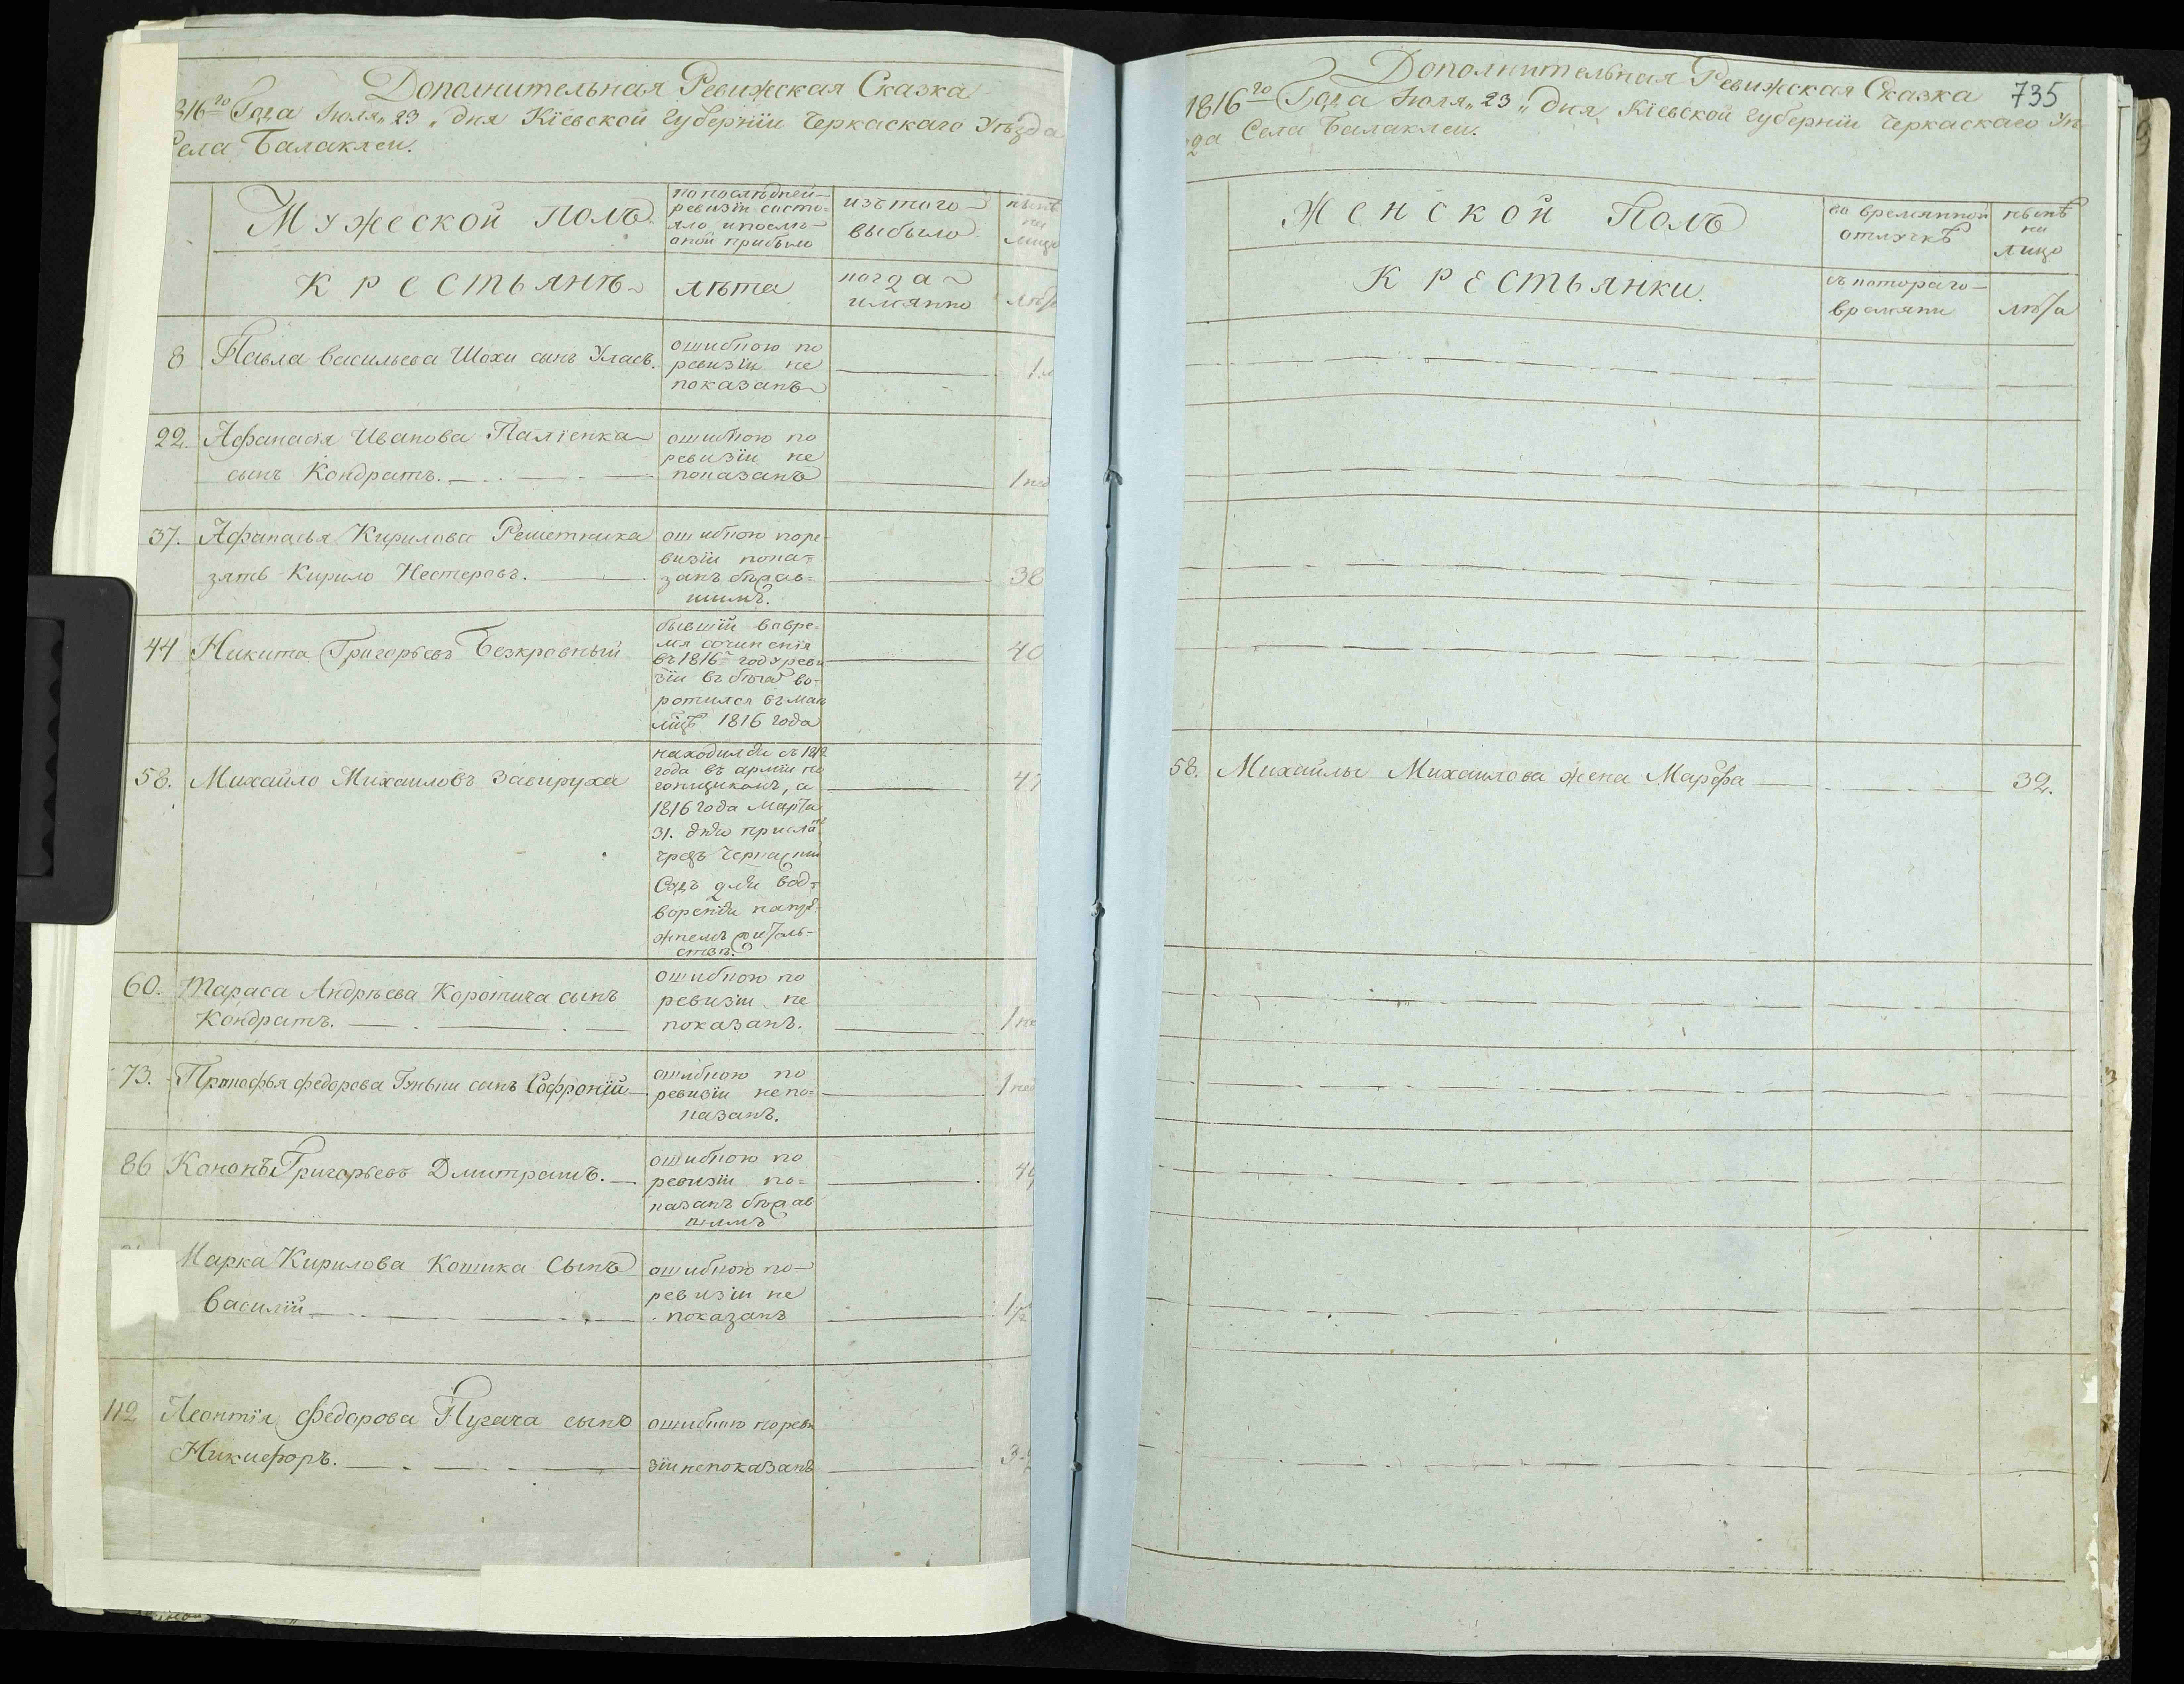 Дополнительная Ревижская Сказка
816го Года Июля „23„ дня Кіевской Губерніи Черкаскаго Уѣзда
Села Балаклеи.
Мужеской полъ.
по послѣдней
ревизіи состо=
яло и послѣ
оной прибыло
изъ того
выбыло
нынѣ
на
лицо
Крестьянъ
лѣта
когда
имянно
лѣта
8 Павла Васильева Шохи сынъ Уласъ.
ошибкою по
ревизіи не
показанъ
22. Афанасія Иванова Паліенка
сынъ Кондратъ.
ошибкою по
ревизіи не
показанъ
37. Афанасья Кирилова Решетника
зять Кирило Нестеровъ.
ошибкою поре
визіи пока=
занъ бѣжав=
шимъ.
38
44 Никита Григорьевъ Безкровный
бывшій вовре
мя сочиненія
въ 1816м году реви
зіи въ бѣгах во=
ротился въ
1816 года
40
58. Михайло Михаиловъ Завируха
находился съ 1812
года въ арміи по
гонщикомъ, а
1816 года Марта
31. дня присла
чрезъ Черкаскій
Судъ для вод=
воренія на
жнемъ житель=
ствѣ
47
60. Тараса Андрѣева Коротича сынъ
Кондратъ.
ошибкою по
ревизіи не
показанъ.
73. Прокофья Федорова сынъ Софроній
ошибкою по
ревизіи непо=
казанъ.
86 Кононъ Григорьевъ Дмитрашъ.
ошибкою по
ревизіи по=
казанъ бѣжав
шимъ
Марка Кирилова Кошика Сынъ
Василій
ошибкою по
ревизіи не
показанъ
112 Леонтія Федорова Пугача сынъ
Никифоръ.
ошибкою по реви
зіи непоказанъ
Дополнительная Ревижская Сказка
735
1816го Года Июля „23„ дня Кіевской Губерніи Черкаскаго Уѣ
зда Села Балаклеи.
Женской Полъ
во времянной
отлучкѣ
нынѣ
на
лицо
Крестьянки.
съ котораго
времяни
лѣта
58. Михайлы Михаилова жена Марфа
32.